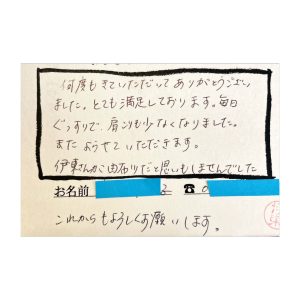 何度もきていただいてありがとうござい
ました。とても満足しております。毎日
ぐっすりで、肩こりも少なくなりました。
またよせていただきます。
伊東さんが 思いもしませんでした
お名前 ☎0
これからもよろしくお願いします。